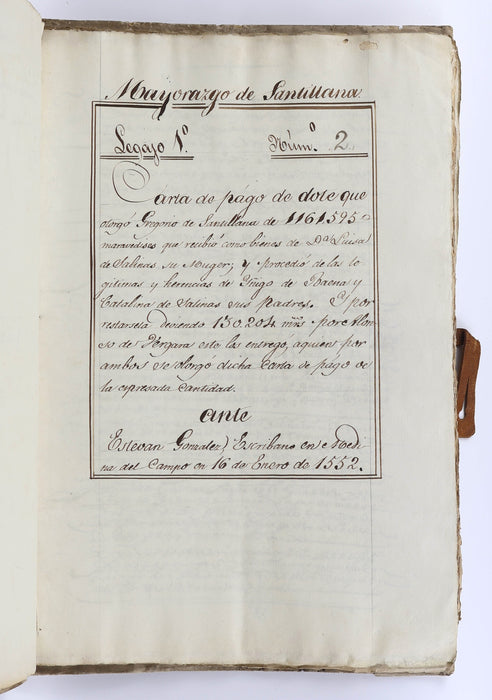 Mayorazgo de Santillana
Legajo 1º. Núm.º 2.
Carta de págo de dote que
otorgó Gregorio de Santillana de 1161595
maravedises que recibió como bienes de Dª. Luisa
de Salinas su Muger; y procedió de las le
gitimas y herencias de Yñigo de Baena y
Catalina de Salinas sus padres. por
restarsela deviendo 130.204 mrs. por Alon
so de Vergara esto las entregó, aquien por
ambos se otorgó dicha Carta de págo de
la expresada Cantidad.
Ante
Estevan Gonzalez, Escribano en Medi
na del Campo en 16 de Enero de 1552.